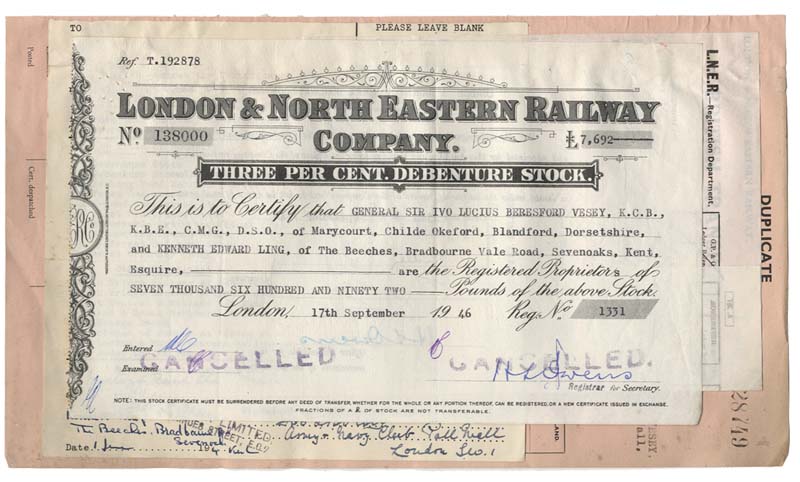 TO
PLEASE LEAVE BLANK
Posted
Cert. despatched
Ref. T.192878
LONDON & NORTH EASTERN RAILWAY
COMPANY.
No 138000
£7,692
THREE PER CENT. DEBENTURE STOCK.
This is to Certify that GENERAL SIR IVO LUCIUS BERESFORD VESEY, K.C.B.,
K.B.E., C.M.G., D.S.O., of Marycourt, Childe Okeford, Blandford, Dorsetshire,
and KENNETH EDWARD LING, of The Beeches, Bradbourne Vale Road, Sevenoaks, Kent,
Esquire, are the Registered Proprietors of
SEVEN THOUSAND SIX HUNDRED AND NINETY TWO Pounds of the above Stock.
London, 17th September 1946 Reg. No 1331
Entered
Examined
CANCELLED
CANCELLED.
H L Owens
Registrar for Secretary.
NOTE: THIS STOCK CERTIFICATE MUST BE SURRENDERED BEFORE ANY DEED OF TRANSFER, WHETHER FOR THE WHOLE OR ANY PORTION THEREOF, CAN BE REGISTERED, OR A NEW CERTIFICATE ISSUED IN EXCHANGE.
FRACTIONS OF A £ OF STOCK ARE NOT TRANSFERABLE.
L.N.E.R.—Registration Department.
DUPLICATE
28749
The Beeches, Bradbourne
Sevenoaks
LIMITED
Army & Navy Club Pall Mall
London S.W.1
Date 1 June 194